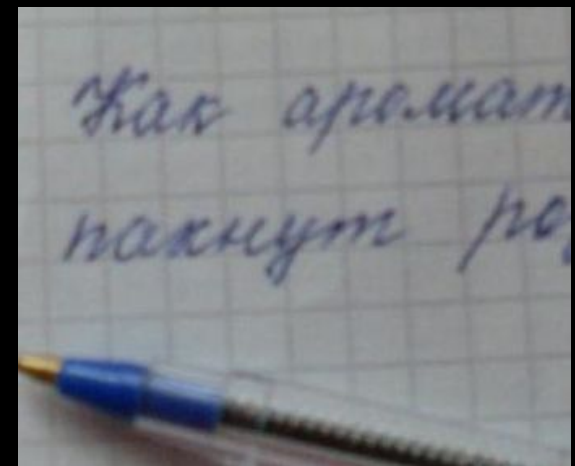 Как аромат
пахнут ро